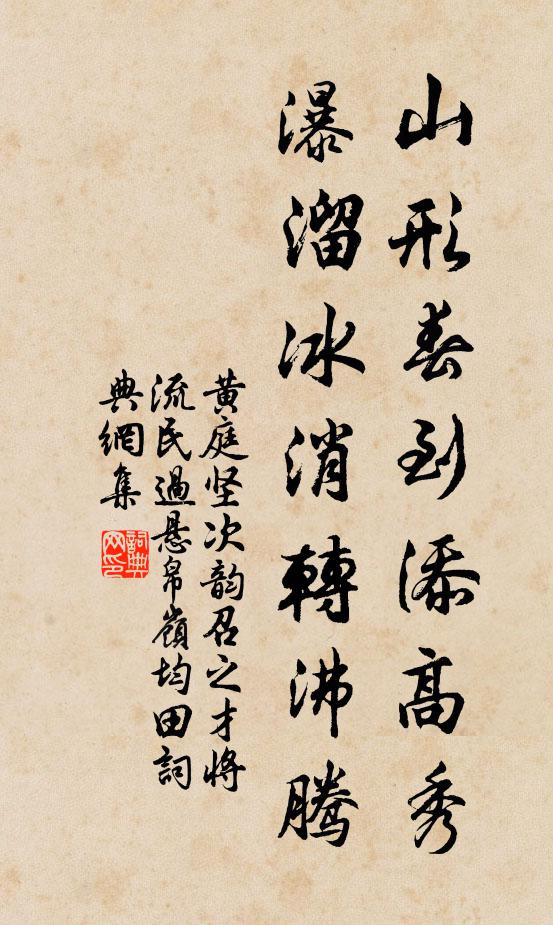 山形春到添高秀
瀑溜冰消轉沸騰
黃庭坚次韵召之才將
流民過悬帛嶺均田詞
典網集
詞典
网印